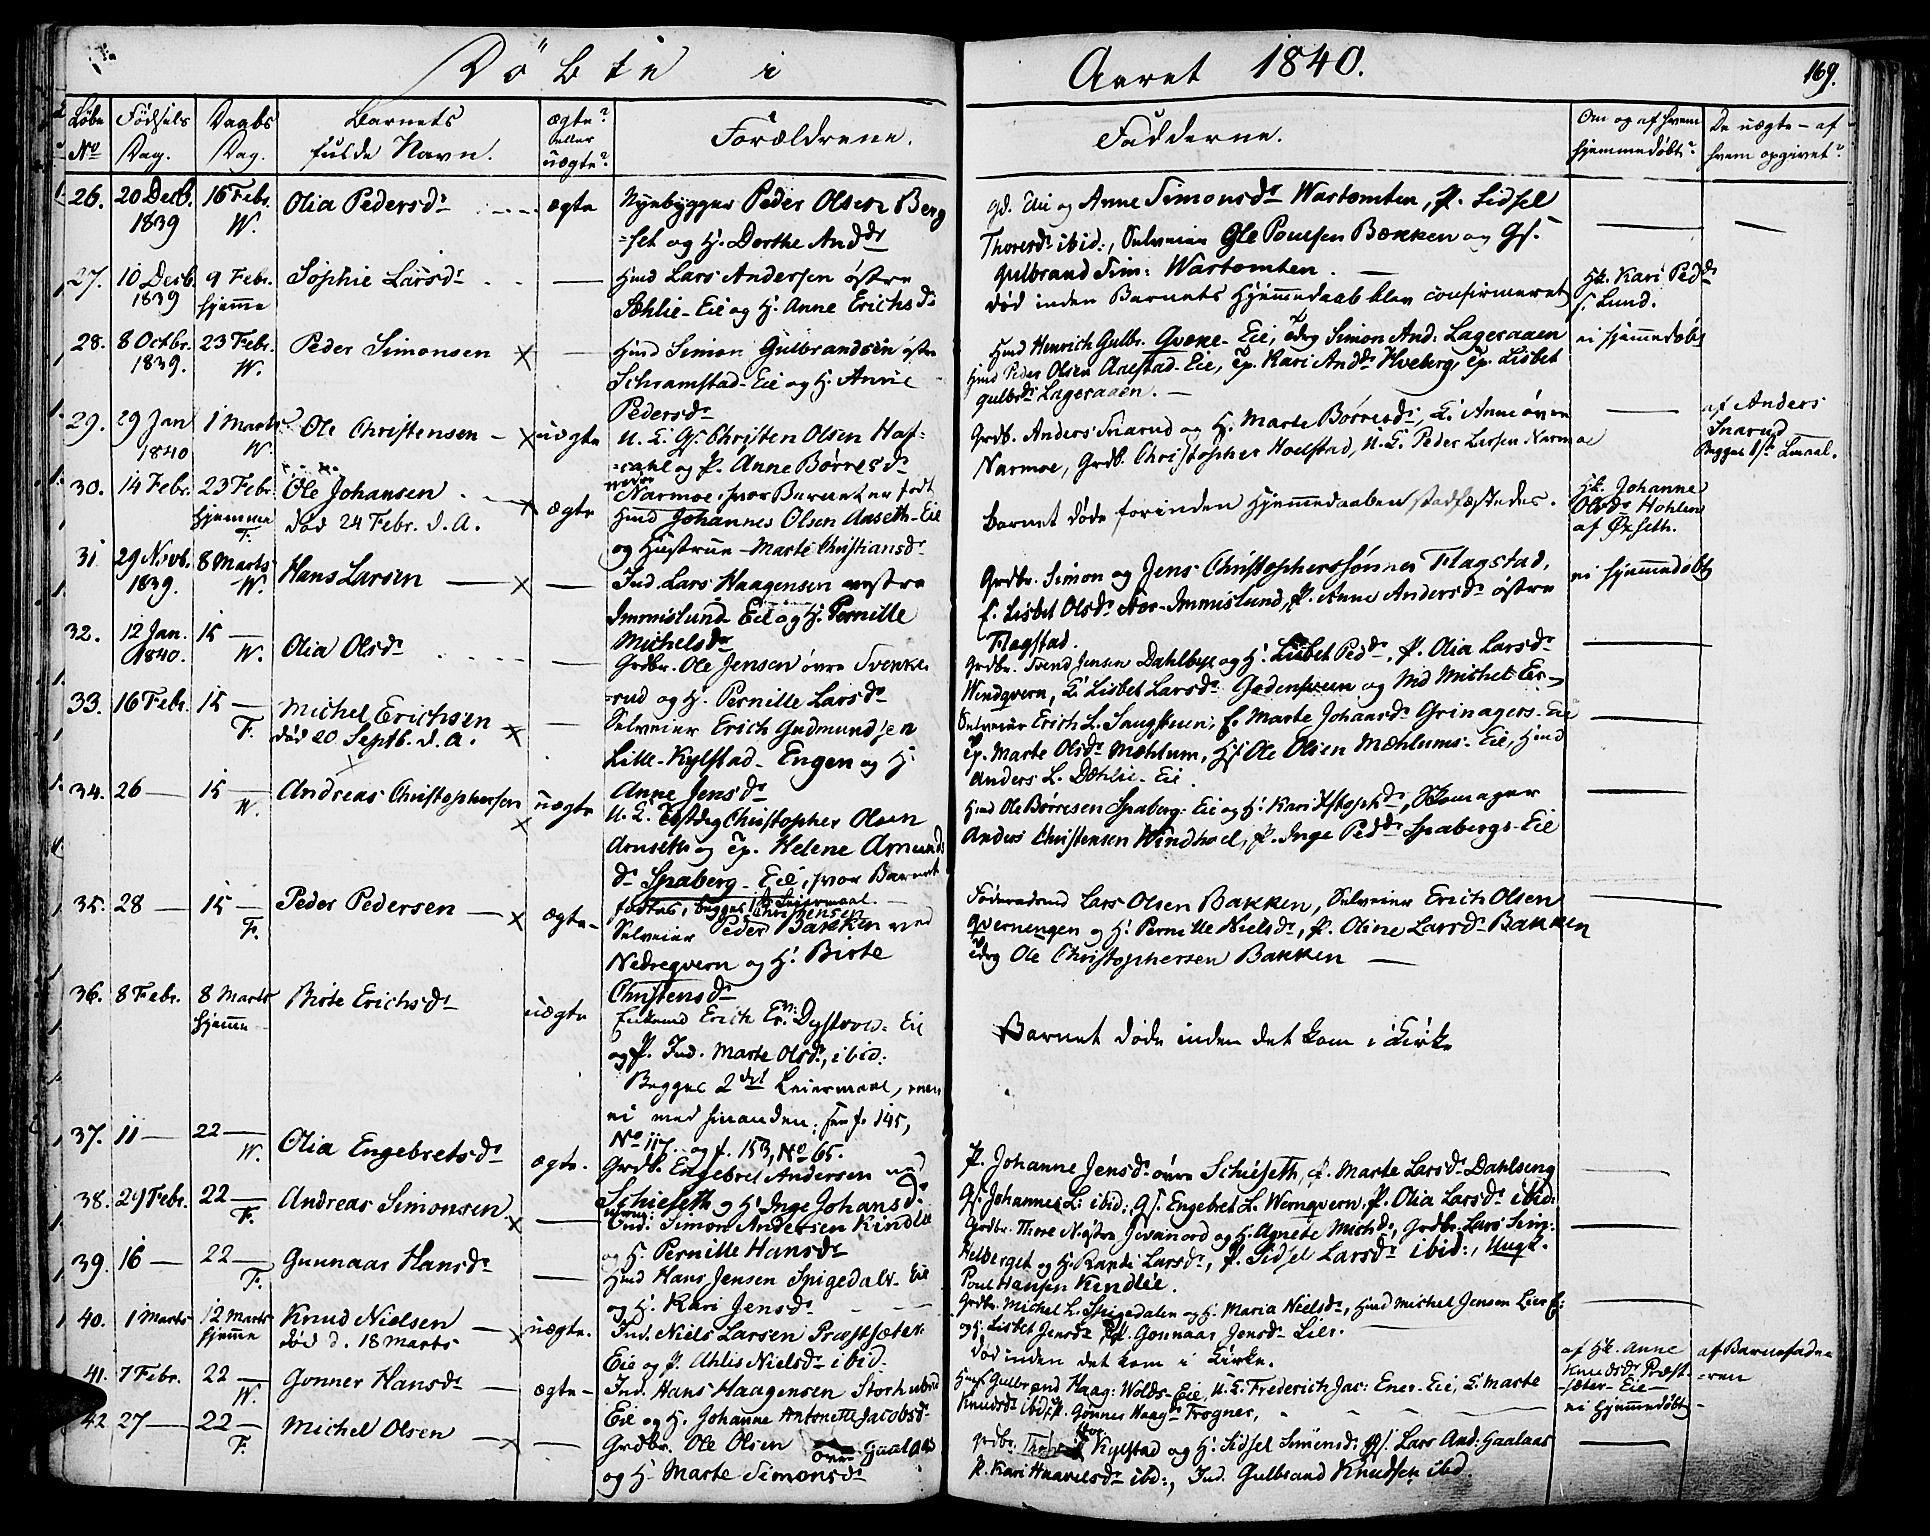 Döbte i Aaret 1840.
169.
Løbe No
Födsels Dag.
Daabs Dag.
Barnets fulde Navn.
ægte? eller uægte?
Forældrene.
Fadderne.
Om og af hvem hjemmedøbt?
De uægte – af hvem opgivet?
26. 20 Decb. 1839
16 Febr. W.
Olia Pedersdr
ægte
Nyebygger Peder Olsen Berg
-set og H. Dorthe Anddr
gd. Eie og Anne Simonsdr Wastomten, P. Lidsel
Thoresdr ibid:, Selveier Ole Poulsen Bækken og Gf.
Gulbrand Sim: Wastomten. —
27. 10 Decb. 1839
9 Febr. hjemme
Sophie Larsdr
—
Hmd Lars Andersen östre
Sæhlie-Eie og H. Anne Erichsdr
død inden Barnets Hjemmedaab blev confirmeret
Hk. Kari Peddr
Lund.
28. 8 Octbr. 1839.
23 Febr. W.
Peder Simonsen ×
—
Hmd Simon Gulbrandsen östre
Schramstad-Eie og H. Anne
Pedersdr
Hmd Henrich Gulbr. Qvæne-Eie, Simon And: Lageraaen
Hmd Peder Olsen Aaestad-Eie, Ep. Kari Anddr Hveberg, Ep. Lisbet
Gulbrdr Lageraaen. —
ei hjemmedøbt
29. 29 Jan 1840
1 Marts W.
Ole Christensen — ×
uægte
U. K. Gf. Christen Olsen Hof-
og P. Anne Børresdr
Narmoe, hvor Barnet er født
Grdb. Anders Snarud og H. Marte Børresdr, Anne övre
Narmoe, Grdb. Christopher Hoelstad, U. K. Peder Larsen Narmoe
af Anders
Snarud
Begges 1ste Lmaal.
30. 14 Febr.
23 Febr. hjemme F.
Ole Johansen
død 24 Febr. d. A. ×
ægte
Hmd Johannes Olsen Aaseth-Eie
og Hustrue Marte Christiansdr
Barnet døde forinden Hjemmedaaben stadfæstedes.
Hk. Johanne
Olsdr Hohlen
af Øxseth.
31. 29 Novb. 1839.
8 Marts W.
Hans Larsen — ×
—
Ind. Lars Haagensen vestre
Immislund-Eie og H. Pernille
Michelsdr
Grdbr. Simon og Jens Christopherssønner Flagstad,
E. Lisbet Olsdr Immislund, P. Anne Andersdr østre
Flagstad.
ei hjemmedøbt
32. 12 Jan. 1840.
15 — W.
Olia Olsdr
—
Grdbr. Ole Jensen övre Svenke-
rud og H. Pernille Larsdr
Grdbr. Svend Jensen Dahlbye og H. Lisbet Peddr, P. Olia Larsdr
Windqvern, Lisbet Larsdr Godenhuen og Michel Er-
33. 16 Febr.
15 — F.
Michel Erichsen
død 20 Septb. d. A. ×
—
Selveier Erich Gudmundsen
Lille-Kylstad-Engen og H.
Anne Jensdr
Selveier Erich L. Haugstuen, E. Marte Johansdr Grinagers-Eie
Ep. Marte Olsdr Mæhlum, Gf. Ole Olsen Mæhlums-Eie, Hmd
Anders L. Dæhlie-Eie
34. 26 —
15 — W.
Andreas Christophersen ×
uægte
U. K. Christopher Olsen
Arnseth og Ep. Helene Amund-
dr Spaberg-Eie, hvor Barnet
fødtes, begges 1ste Leiermaal. —
Hmd Ole Børresen Spaberg-Eie og H. Kari Xstophdr, Skomager
Anders Christensen Windhoel, P. Inge Peddr Spabergs-Eie
35. 28 —
15 — F.
Peder Pedersen — ×
ægte
Selveier Peder Christensen Bakken ved
Nedreqvern og H. Birte
Christensdr
Føderaadsmd Lars Olsen Bakken, Selveier Erich Olsen
Qvernengen og H. Pernille Nielsdr, P. Oline Larsdr Bakken
Ole Christophersen Bakken —
36. 8 Febr.
8 Marts hjemme
Birte Erichsdr
uægte
Enkemd Erich Er. Dystvold-Eie
og P. Ind. Marte Olsdr, ibid:
Begges 2det Leiermaal, men
ei med hinanden, see f. 145,
No 117. og f. 153, No 65.
Barnet døde inden det kom i Kirke
37. 11 —
22 — W.
Olia Engebretsdr
ægte.
Grdb. Engebret Andersen
Schieseth og H. Inge Johansdr
P. Johanne Jensdr övre Schieseth, P. Marte Larsdr Dahlseng
Gf. Johannes L: ibid:, Gf. Engebret L. Wernqvern, P. Olia Larsdr ibid:
38. 29 Febr.
22 — F.
Andreas Simonsen ×
—
Ind: Simon Andersen Kindlie
og H. Pernille Hansdr
Grdbr. Jevanord og H. Agnete Michdr, Grdbr. Lars Sim.
Helberget og H. Randi Larsdr, P. Sidsel Larsdr ibid:, Ungk.
Poul Hansen Kindlie.
39. 16 —
22 — F.
Gunnaar Hansdr
—
Hmd Hans Jensen Spigedalr-Eie
og H. Kari Jensdr
Grdbr. Michel L. Spigedalen og H. Maria Nielsdr, Hmd Michel Jensen Lier E:
og H. Lisbet Jensdr, P. Gonnaar Jensdr Lier.
40. 1 Marts
12 Marts hjemme
Knud Nielsen
død d. 18 Marts — ×
uægte.
Ind. Niels Larsen Præstsæter-
Eie og P. Ahlis Nielsdr ibid.
død inden det kom i Kirke.
af Hk. Anne
Knudsdr Præst-
sæter-Eie —
af Barnefade-
ren
41. 7 Febr.
22 — W.
Gonner Hansdr —
ægte —
Ind. Hans Haagensen Storhuvd
Eie og H. Johanne Antonette Jacobsdr
Hmd Gulbrand Haag: Wolds-Eie, U. K. Frederich Jac: Ener-Eie, E. Marte
Knudsdr ibid, P. Gonner Haagdr Frogner,
ei hjemmedøbt —
42. 27 —
22 — F.
Michel Olsen — ×
—
Grdbr. Ole Olsen övre Gaalaas
og H. Marte Simonsdr
Grdbr: Kylstad og H. Sidsel Simensdr: Gf. Lars And: Gaalaas
P. Kari Haavelsdr ibid:, Ind. Gulbrand Knudsen ibid.